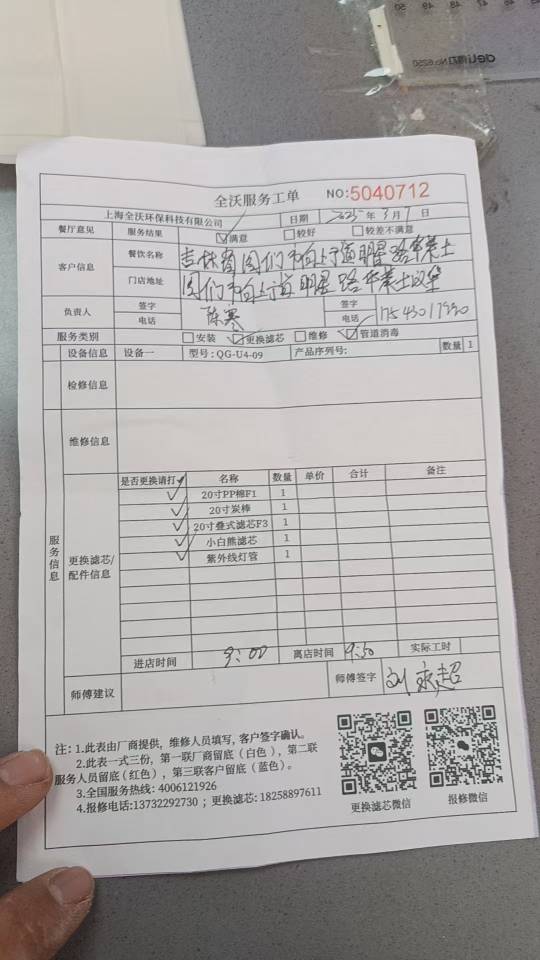 deli 得力 No.6250
全沃服务工单 NO:5040712
上海全沃环保科技有限公司 日期 2025年3月7日
餐厅意见 服务结果 ☑满意 □较好 □较差不满意
客户信息 餐饮名称 吉林省图们市向上街道明星路华莱士
门店地址 图们市向上街道明星路华莱士汉堡
负责人 签字 签字
电话 陈寒 电话 17543017990
服务类别 □安装 ☑更换滤芯 □维修 ☑管道消毒
设备信息 设备一 型号:QG-U4-09 产品序列号: 数量 1
检修信息
维修信息
服务信息
更换滤芯/配件信息
是否更换请打✓ 名称 数量 单价 合计 备注
✓ 20寸PP棉F1 1
✓ 20寸炭棒 1
✓ 20寸叠式滤芯F3 1
✓ 小白熊滤芯 1
✓ 紫外线灯管 1
进店时间 9:00 离店时间 9:50 实际工时
师傅建议 师傅签字 刘永超
注:1.此表由厂商提供,维修人员填写,客户签字确认。
2.此表一式三份,第一联厂商留底(白色),第二联
服务人员留底(红色),第三联客户留底(蓝色)。
3.全国服务热线:4006121926
4.报修电话:13732292730;更换滤芯:18258897611
更换滤芯微信 报修微信